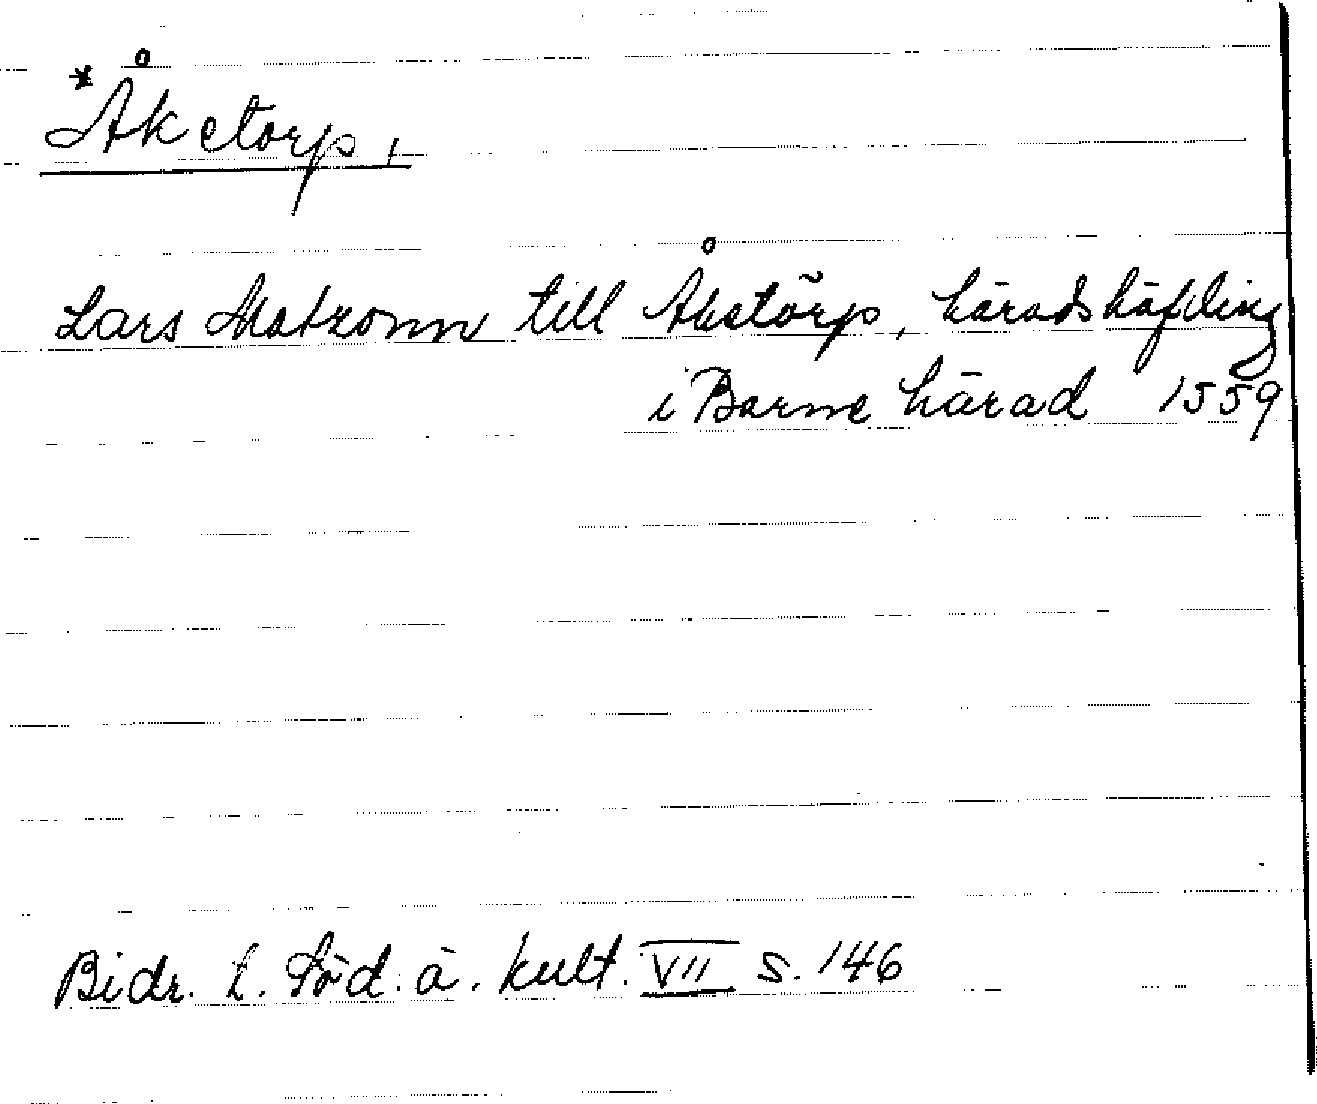 *Åketorp,
Lars Matzonn till Åketörp, häradshäfding
i Barne härad 1559
Bidr. t. Söd. ä. kult. VII s. 146